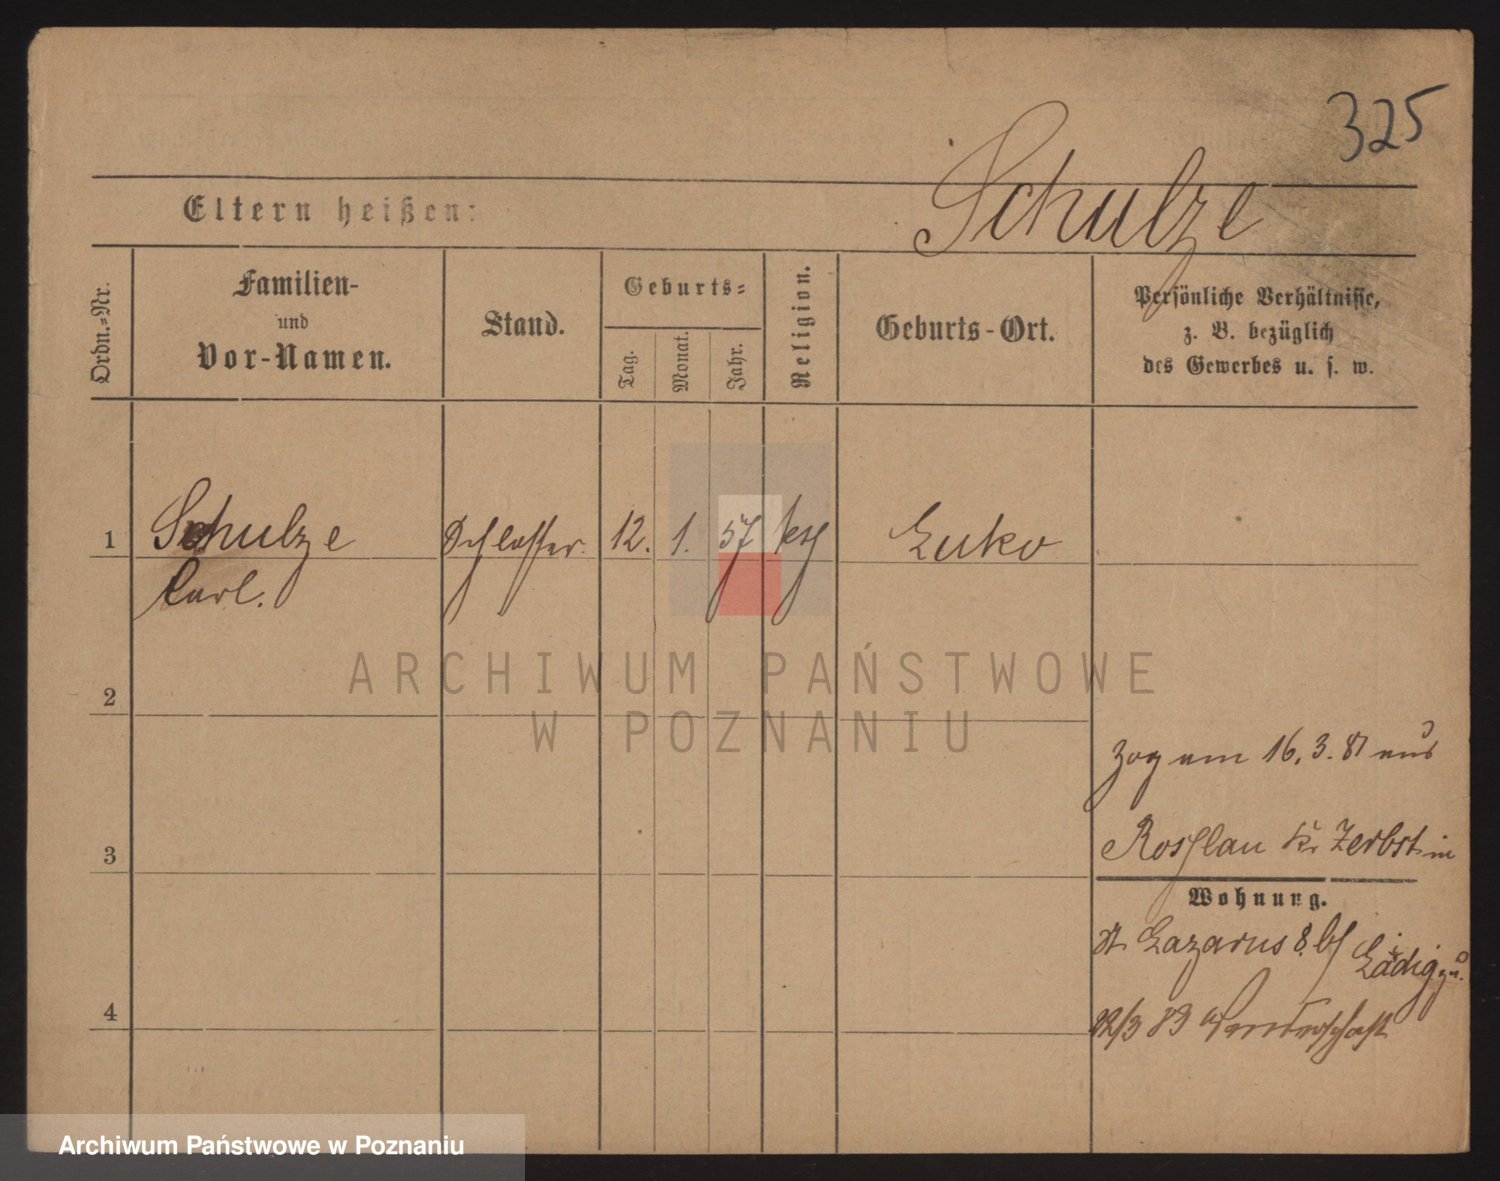 325
Schulze
Eltern heißen:
Ordn.-Nr.
Familien-
und
Vor-Namen.
Stand.
Geburts-
Tag.
Monat.
Jahr.
Religion.
Geburts-Ort.
Persönliche Verhältnisse,
z. B. bezüglich
des Gewerbes u. s. w.
1
Schulze
Carl.
Schlosser
12.
1.
57
Luko
2
3
4
zog am 16. 3. 81 aus
Rosslau Kr Zerbst in
Wohnung.
St Lazarus 8. bei
22/3 83 Wanderschaft
ARCHIWUM PAŃSTWOWE
W POZNANIU
Archiwum Państwowe w Poznaniu